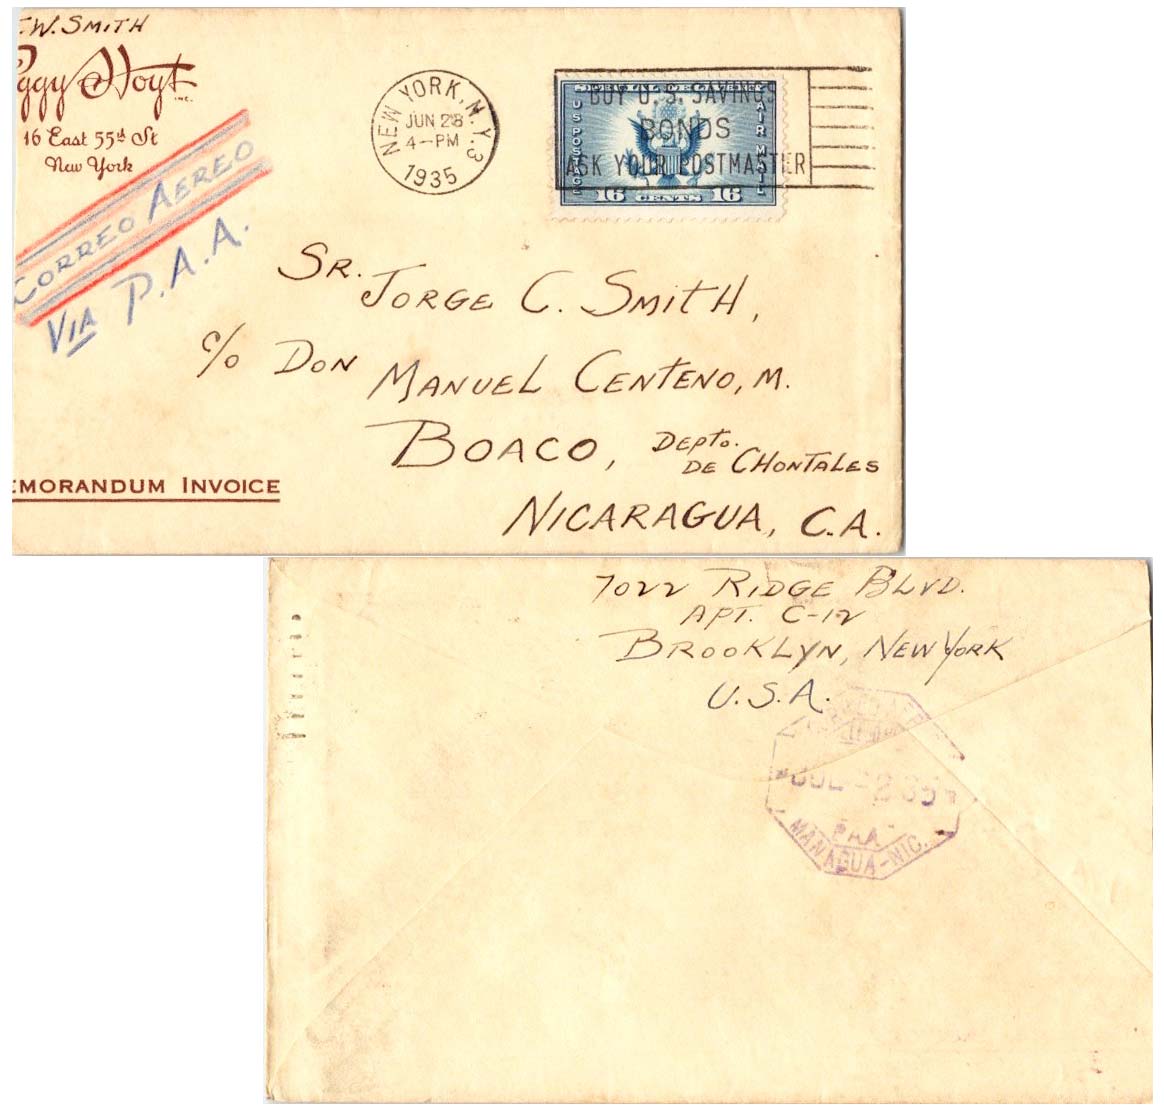 .W. SMITH
ggy Hoyt
INC.
16 East 55th St
New York
CORREO AEREO
VIA P.A.A.
NEW YORK, N.Y. 3
JUN 28
4-PM
1935
BUY U.S. SAVINGS
BONDS
ASK YOUR POSTMASTER
SPECIAL DELIVERY
US POSTAGE
AIR MAIL
16 CENTS 16
SR. JORGE C. SMITH,
c/o DON MANUEL CENTENO, M.
BOACO, DEPTO.
DE CHONTALES
NICARAGUA, C.A.
EMORANDUM INVOICE
7022 RIDGE BLVD.
APT. C-12
BROOKLYN, NEW YORK
U.S.A.
JUL -2 35
PAA
MANAGUA-NIC.